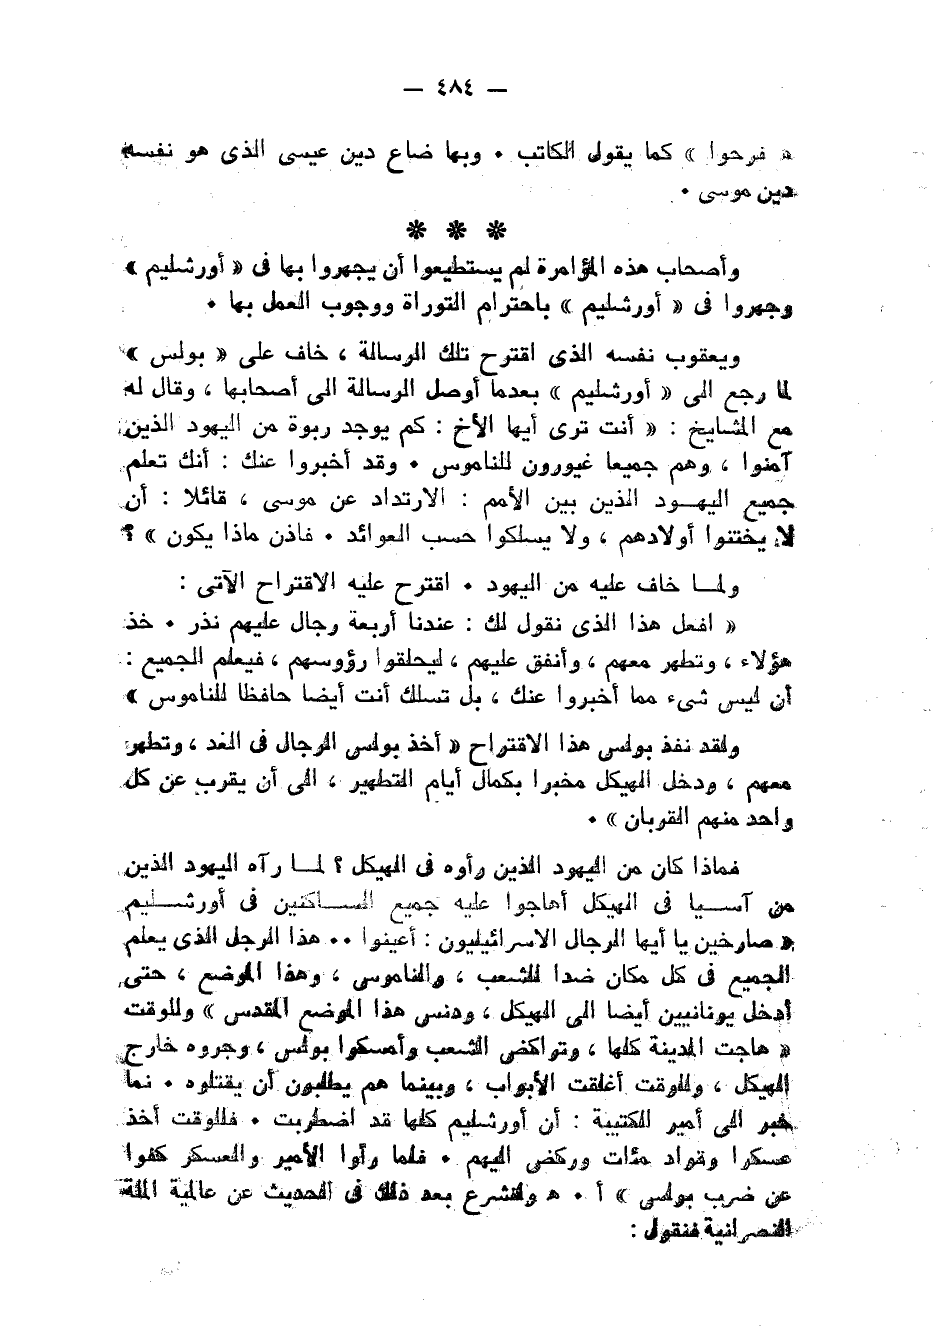 — ٤٨٤ —
« فرحوا » كما يقول الكاتب ٠ وبها ضاع دين عيسى الذى هو نفسه
دين موسى ٠
* * *
وأصحاب هذه المؤامرة لم يستطيعوا أن يجهروا بها فى « أورشليم »
وجهروا فى « أورشليم » باحترام التوراة ووجوب العمل بها ٠
ويعقوب نفسه الذى اقترح تلك الرسالة ، خاف على « بولس »
لما رجع الى « أورشليم » بعدما أوصل الرسالة الى أصحابها ، وقال له
مع المشايخ : « أنت ترى أيها الأخ : كم يوجد ربوة من اليهود الذين
آمنوا ، وهم جميعا غيورون للناموس ٠ وقد أخبروا عنك : أنك تعلم
جميع اليهـود الذين بين الأمم : الارتداد عن موسى ، قائلا : أن
لا يختنوا أولادهم ، ولا يسلكوا حسب العوائد ٠ فاذن ماذا يكون » ؟
ولمـا خاف عليه من اليهود ٠ اقترح عليه الاقتراح الآتى :
« افعل هذا الذى نقول لك : عندنا أربعة رجال عليهم نذر ٠ خذ
هؤلاء ، وتطهر معهم ، وأنفق عليهم ، ليحلقوا رؤوسهم ، فيعلم الجميع :
أن ليس شىء مما أخبروا عنك ، بل تسلك أنت أيضا حافظا للناموس »
ولقد نفذ بولس هذا الاقتراح « أخذ بولس الرجال فى الغد ، وتطهر
معهم ، ودخل الهيكل مخبرا بكمال أيام التطهير ، الى أن يقرب عن كل
واحد منهم القربان » ٠
فماذا كان من اليهود الذين رأوه فى الهيكل ؟ لمـا رآه اليهود الذين
من آسـيا فى الهيكل أهاجوا عليه جميع السـاكنين فى أورشـليم
« صارخين يا أيها الرجال الاسرائيليون : أعينوا ٠٠ هذا الرجل الذى يعلم
الجميع فى كل مكان ضدا للشعب ، والناموس ، وهذا الموضع ، حتى
أدخل يونانيين أيضا الى الهيكل ، ودنس هذا الموضع المقدس » وللوقت
« هاجت المدينة كلها ، وتراكض الشعب وأمسكوا بولس ، وجروه خارج
الهيكل ، وللوقت أغلقت الأبواب ، وبينما هم يطلبون أن يقتلوه ٠ نما
خبر الى أمير الكتيبة : أن أورشليم كلها قد اضطربت ٠ فللوقت أخذ
عسكرا وقواد مئات وركض اليهم ٠ فلما رأوا الأمير والعسكر كفوا
عن ضرب بولس » أ ٠ ه ولنشرع بعد ذلك فى الحديث عن عالمية الملة
النصرانية فنقول :